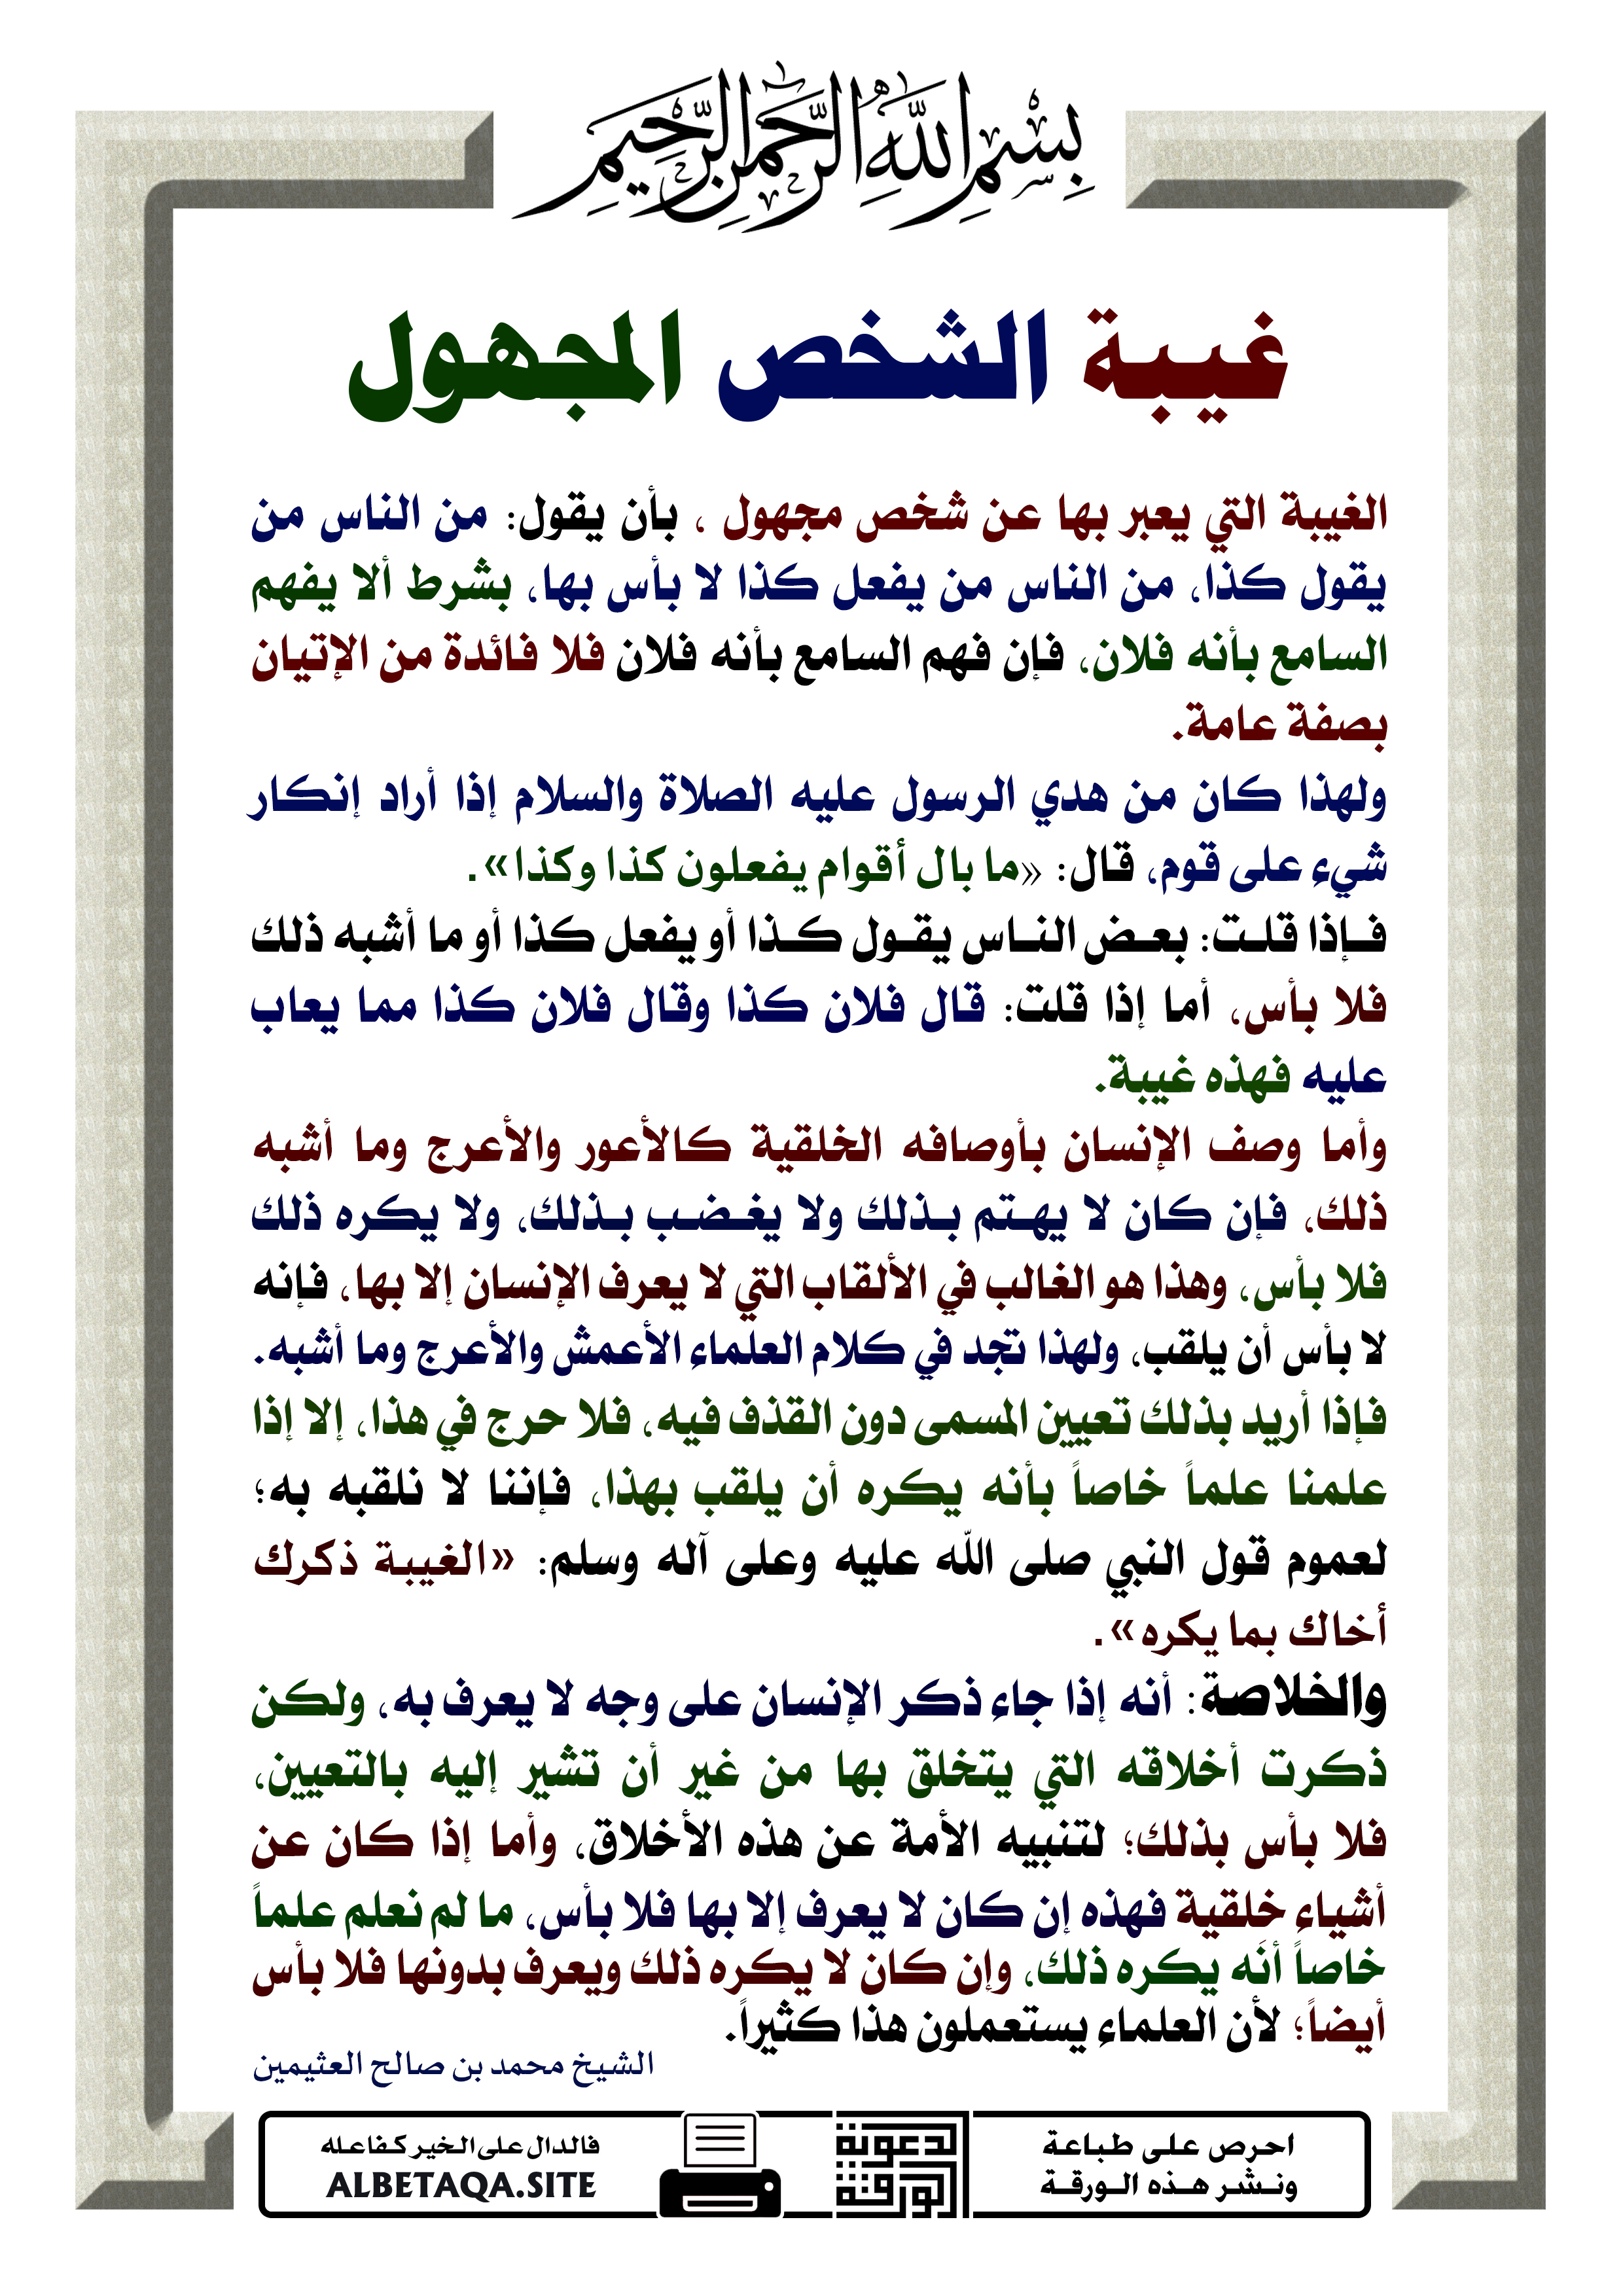 بِسْمِ اللَّهِ الرَّحْمَنِ الرَّحِيمِ
غيبة الشخص المجهول
الغيبة التي يعبر بها عن شخص مجهول ، بأن يقول: من الناس من
يقول كذا، من الناس من يفعل كذا لا بأس بها، بشرط ألا يفهم
السامع بأنه فلان، فإن فهم السامع بأنه فلان فلا فائدة من الإتيان
بصفة عامة.
ولهذا كان من هدي الرسول عليه الصلاة والسلام إذا أراد إنكار
شيء على قوم، قال: «ما بال أقوام يفعلون كذا وكذا».
فإذا قلت: بعض الناس يقول كذا أو يفعل كذا أو ما أشبه ذلك
فلا بأس، أما إذا قلت: قال فلان كذا وقال فلان كذا مما يعاب
عليه فهذه غيبة.
وأما وصف الإنسان بأوصافه الخلقية كالأعور والأعرج وما أشبه
ذلك، فإن كان لا يهتم بذلك ولا يغضب بذلك، ولا يكره ذلك
فلا بأس، وهذا هو الغالب في الألقاب التي لا يعرف الإنسان إلا بها، فإنه
لا بأس أن يلقب، ولهذا تجد في كلام العلماء الأعمش والأعرج وما أشبه.
فإذا أريد بذلك تعيين المسمى دون القذف فيه، فلا حرج في هذا، إلا إذا
علمنا علماً خاصاً بأنه يكره أن يلقب بهذا، فإننا لا نلقبه به؛
لعموم قول النبي صلى الله عليه وعلى آله وسلم: «الغيبة ذكرك
أخاك بما يكره».
والخلاصة: أنه إذا جاء ذكر الإنسان على وجه لا يعرف به، ولكن
ذكرت أخلاقه التي يتخلق بها من غير أن تشير إليه بالتعيين،
فلا بأس بذلك؛ لتنبيه الأمة عن هذه الأخلاق، وأما إذا كان عن
أشياء خَلقية فهذه إن كان لا يعرف إلا بها فلا بأس، ما لم نعلم علماً
خاصاً أنَه يكره ذلك، وإن كان لا يكره ذلك ويعرف بدونها فلا بأس
أيضاً؛ لأن العلماء يستعملون هذا كثيراً.
الشيخ محمد بن صالح العثيمين
احرص على طباعة
ونشر هذه الورقة
الورقة
الدعوية
فالدال على الخير كفاعله
ALBETAQA.SITE